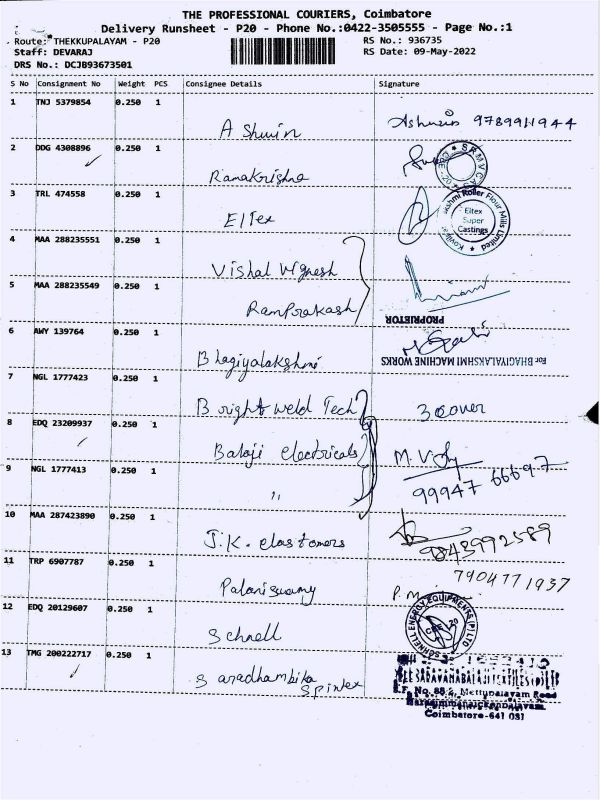 THE PROFESSIONAL COURIERS, Coimbatore
Delivery Runsheet - P20 - Phone No.:0422-3505555 - Page No.:1
Route: THEKKUPALAYAM - P20 RS No.: 936735
Staff: DEVARAJ RS Date: 09-May-2022
DRS No.: DCJB93673501
S No Consignment No Weight PCS Consignee Details Signature
1 TNJ 5379854 0.250 1 A Shwin Ashwin 9789911944
2 DDG 4308896 0.250 1 Ramakrishna SRMVCAS
3 TRL 474558 0.250 1 Eltex Roller Flour Mills Limited Eltex Super Castings
4 MAA 288235551 0.250 1 Vishal Vignesh
5 MAA 288235549 0.250 1 RamPrakash PROPRIETOR
6 AWY 139764 0.250 1 Bhagiyalakshmi For BHAGIYALAKSHMI MACHINE WORKS
7 NGL 1777423 0.250 1 Bright weld Tech 3 cover
8 EDQ 23209937 0.250 1 Balaji electricals M.V
9 NGL 1777413 0.250 1 " 99947 66697
10 MAA 287423890 0.250 1 J.K. elastomers 9843992589
11 TRP 6907787 0.250 1 Palaniswamy P.M 7904771937
12 EDQ 20129607 0.250 1 Schnell SCHNELL ENERGY EQUIPMENTS (P) LTD CBE-20
13 TMG 200222717 0.250 1 Saradhambika Spintex
S.F. No. 88/2, Mettupalayam Road
Narasimmanaickenpalayam,
Coimbatore-641 031